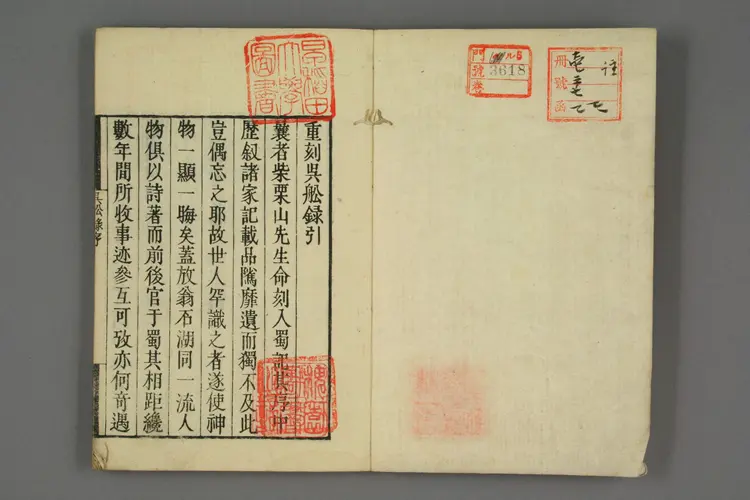 門 ル5
號 3618
卷
冊
號
函
早稲田
大學
圖書
重刻吳舩録引
曩者柴栗山先生命刻入蜀記其序中
歷叙諸家記載品隲靡遺而獨不及此
豈偶忘之耶故世人罕識之者遂使神
物一顯一晦矣蓋放翁石湖同一流人
物俱以詩著而前後官于蜀其相距纔
數年間所收事迹參互可攷亦何奇遇